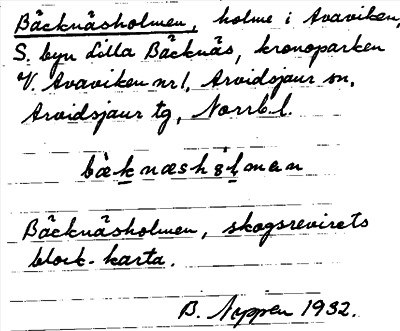 Bäcknäsholmen, holme i Avaviken,
S. byn Lilla Bäcknäs, kronoparken
V. Avaviken nr 1, Arvidsjaur sn,
Arvidsjaur tg, Norrb. l.
Bäcknäsholmen, skogsrevirets
block-karta.
B. Nyppen 1932.